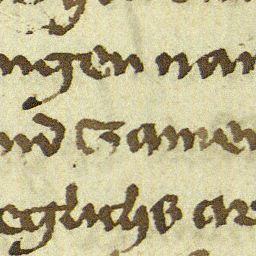 ngen nam
nd Zamen
eglichs ar